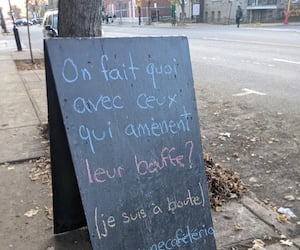 On fait quoi
avec ceux
qui amènent
leur bouffe?
(je suis à boute)